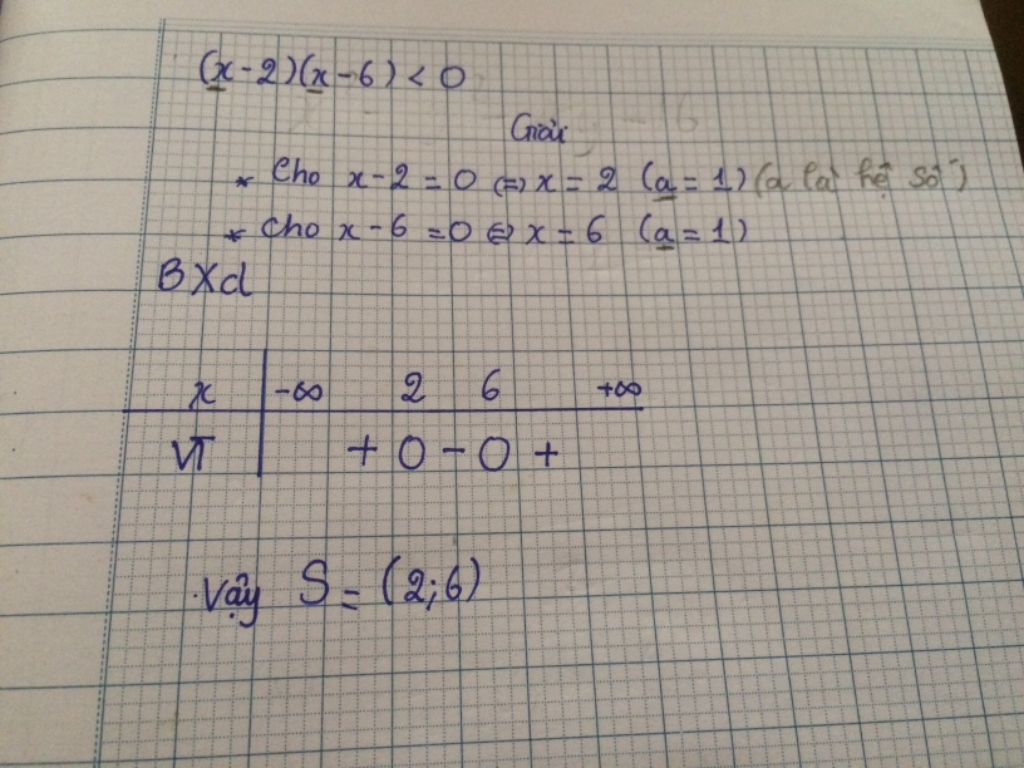 (x-2)(x-6) < 0
Giải
* Cho x-2=0 ⇔ x=2 (a=1) (a là hệ số)
* Cho x-6=0 ⇔ x=6 (a=1)
BXd
x -∞ 2 6 +∞
VT + 0 - 0 +
Vậy S = (2;6)